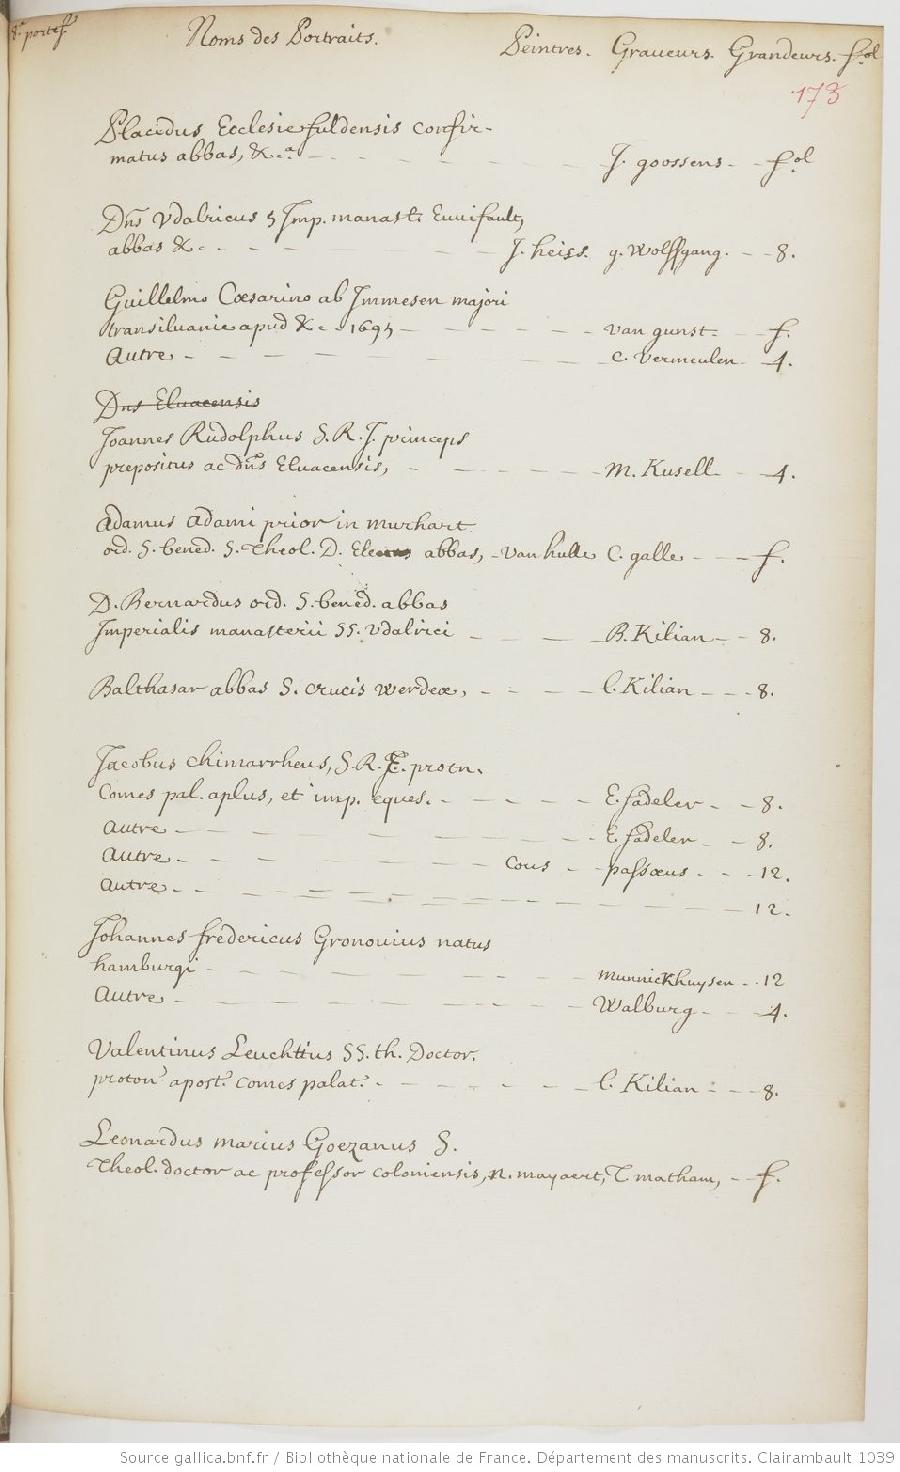 8.e portef.
Noms des Portraits. Peintres. Graveurs. Grandeurs. fol
173
Placidus Ecclesie fuldensis confir-
matus abbas, &c.a J. goossens fol
Dns Vdalricus Imp. manast.
abbas &c. J. heiss. g. Wolffgang. 8.
Guillelmo Cæsarino ab Immesen majori
transiluanie apud &c. 1695 van gunst. f.
Autre c. Vermeulen 4.
Dns Eluacensis
Joannes Rudolphus S. R. J. princeps
prepositus ac dns Eluacensis, M. Kusell 4.
Adamus adami prior in murhart
ord. S. bened. S. Theol. D. abbas, Van hulle C. galle f.
D. Bernardus ord. S. bened. abbas
Imperialis manasterii SS. Vdalrici B. Kilian 8.
Balthasar abbas S. crucis werdeæ, l. Kilian 8.
Jacobus chimarrheus, S. R. E. proton.
Comes pal. aplus, et imp. eques. E. sadeler 8.
Autre E. Sadeler 8.
Autre Cous passæus 12.
Autre 12.
Johannes fredericus Gronouius natus
hamburgi Munnickhuysen 12
Autre Walburg 4.
Valentinus Leuchtius SS. th. Doctor.
proton.s apost.s comes palat.s l. Kilian 8.
Leonardus marius Goezanus S.
Theol. doctor ac professor coloniensis, n. moyaert, T. matham, f.
Source gallica.bnf.fr / Bibliothèque nationale de France. Département des manuscrits. Clairambault 1039